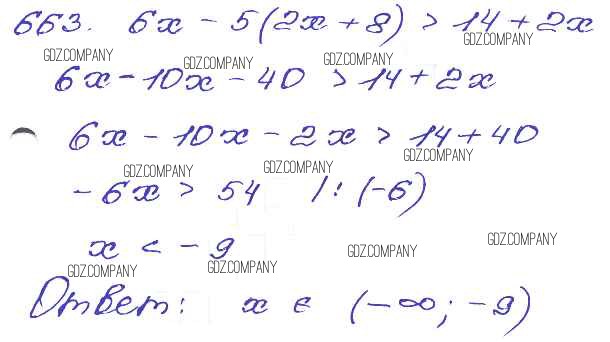 663. 6x - 5(2x + 8) > 14 + 2x
GDZ.COMPANY GDZ.COMPANY GDZ.COMPANY GDZ.COMPANY
6x - 10x - 40 > 14 + 2x
6x - 10x - 2x > 14 + 40
GDZ.COMPANY GDZ.COMPANY GDZ.COMPANY
-6x > 54 /: (-6)
x < -9
GDZ.COMPANY GDZ.COMPANY GDZ.COMPANY GDZ.COMPANY
Ответ: x ∈ (-∞; -9)